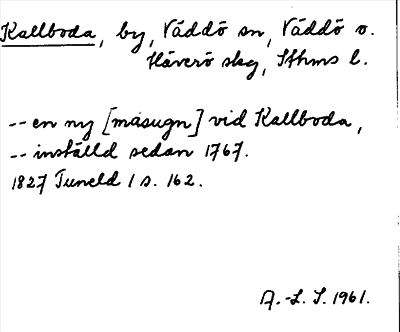 Kallboda, by, Väddö sn, Väddö o.
Häverö skg, Sthms l.
-- en ny [masugn] vid Kallboda,
-- inställd sedan 1767.
1827 Tuneld 1 s. 162.
A.-L. S. 1961.